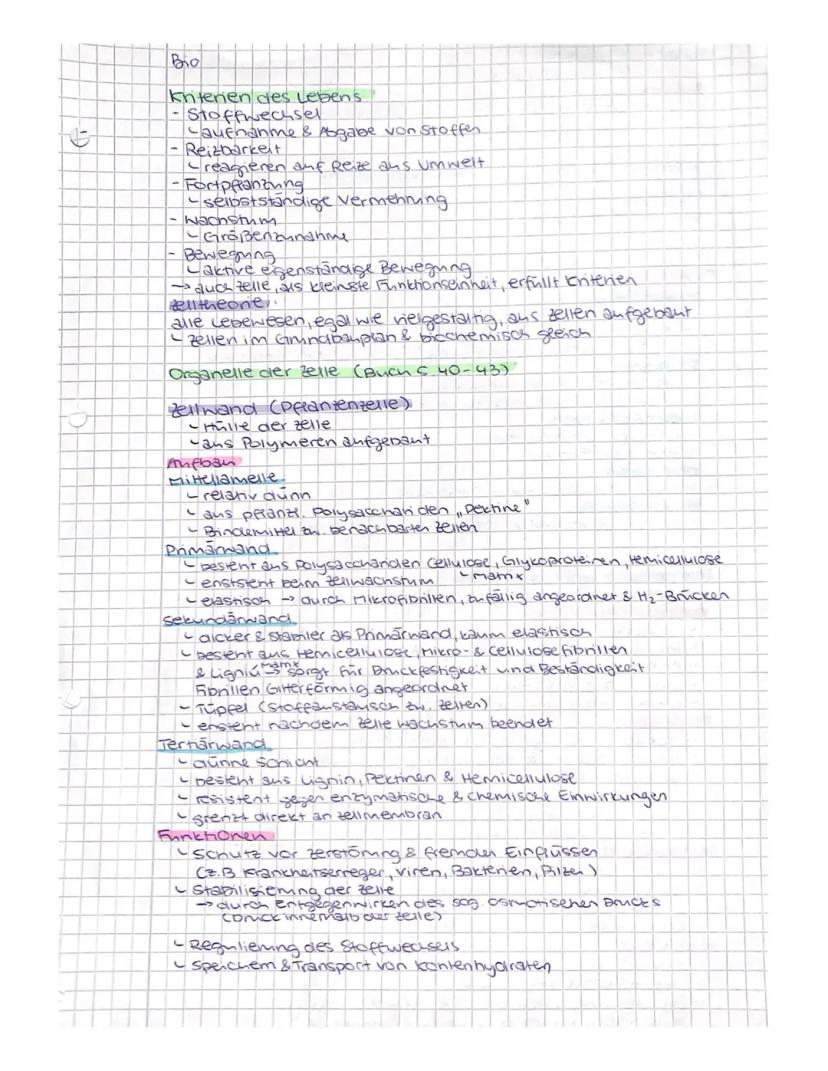 Bio
Kriterien des Lebens
- Stoffwechsel
↳ aufnahme & Abgabe von Stoffen
- Reizbarkeit
↳ reagieren auf Reize aus Umwelt
- Fortpflanzung
↳ selbstständige Vermehrung
- Wachstum
↳ Größenzunahme
- Bewegung
↳ aktive eigenständige Bewegung
→ auch Zelle, als kleinste Funktionseinheit, erfüllt Kriterien
Zelltheorie:
alle Lebewesen, egal wie vielgestaltig, aus Zellen aufgebaut
↳ Zellen im Grundbauplan & biochemisch gleich
Organelle der Zelle (Buch S. 40-43)
Zellwand (Pflanzenzelle)
↳ Hülle der Zelle
↳ aus Polymeren aufgebaut
Aufbau
Mittellamelle
↳ relativ dünn
↳ aus pflanzl. Polysacchariden „Pektine"
↳ Bindemittel zw. benachbarten Zellen
Primärwand
↳ besteht aus Polysacchariden Cellulose, Glykoproteinen, Hemicellulose
↳ enststeht beim Zellwachstum ↳ Matrix
↳ elastisch → durch Mikrofibrillen, zufällig angeordnet & H₂-Brücken
Sekundärwand
↳ dicker & stabiler als Primärwand, kaum elastisch
↳ besteht aus Hemicellulose, Mikro- & Cellulosefibrillen
Matrix
& Lignin → sorgt für Druckfestigkeit und Beständigkeit
Fibrillen Gitterförmig angeordnet
↳ Tüpfel (Stoffaustausch zw. Zellen)
↳ ensteht nachdem Zelle Wachstum beendet
Tertiärwand
↳ dünne Schicht
↳ besteht aus Lignin, Pektinen & Hemicellulose
↳ resistent gegen enzymatische & chemische Einwirkungen
↳ grenzt direkt an Zellmembran
Funktionen
↳ Schutz vor Zerstörung & fremden Einflüssen
(z.B Krankheitserreger, Viren, Bakterien, Pilze)
↳ Stabilisierung der Zelle
→ durch Entgegenwirken des sog. osmotischen Drucks
(Druck innerhalb der Zelle)
↳ Regulierung des Stoffwechsels
↳ Speichern & Transport von Kohlenhydraten